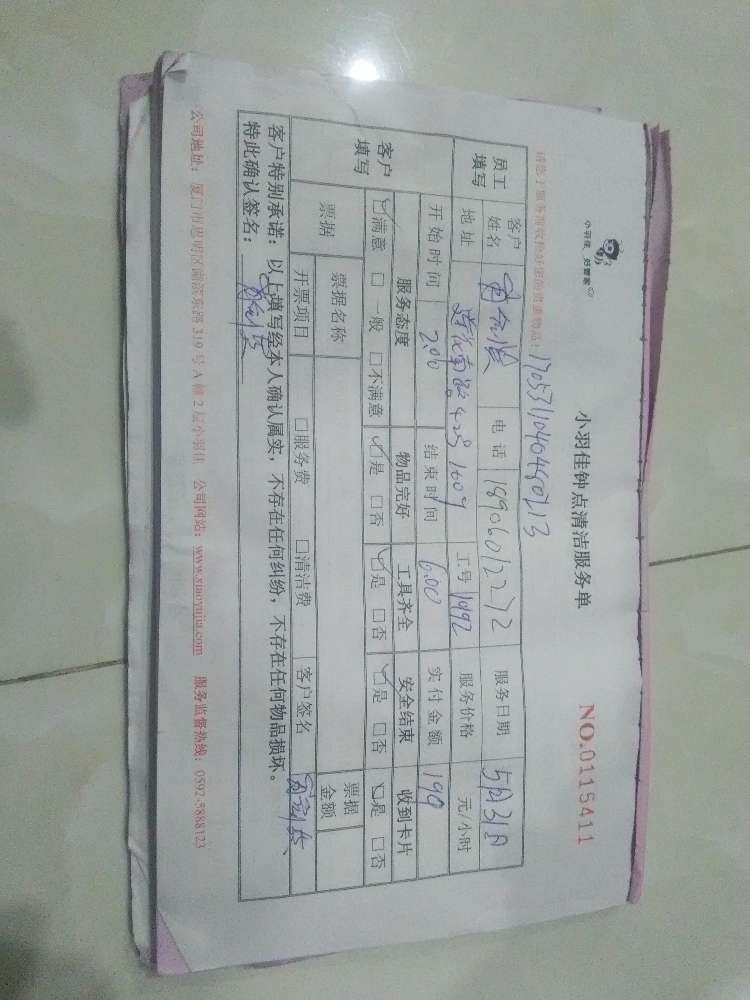 小羽佳 好管家
小羽佳钟点清洁服务单
NO.0115411
请您于服务前收拾好您的贵重物品!
17053110404480213
员工填写 客户姓名 电话 服务日期 5月31日
地址 1609 工号 1992 服务价格 元/小时
开始时间 2.00 结束时间 6.00 实付金额 199
客户填写 服务态度 物品完好 工具齐全 安全结束 收到卡片
☑满意 □一般 □不满意 ☑是 □否 ☑是 □否 ☑是 □否 ☑是 □否
票据 票据名称 票据金额
开票项目 □服务费 □清洁费 客户签名
客户特别承诺:以上填写经本人确认属实,不存在任何纠纷,不存在任何物品损坏。
特此确认签名:
公司地址:厦门市思明区 319号A幢2层小羽佳 公司网站:www.xiaoyujia.com 服务监督热线:0592-5888123